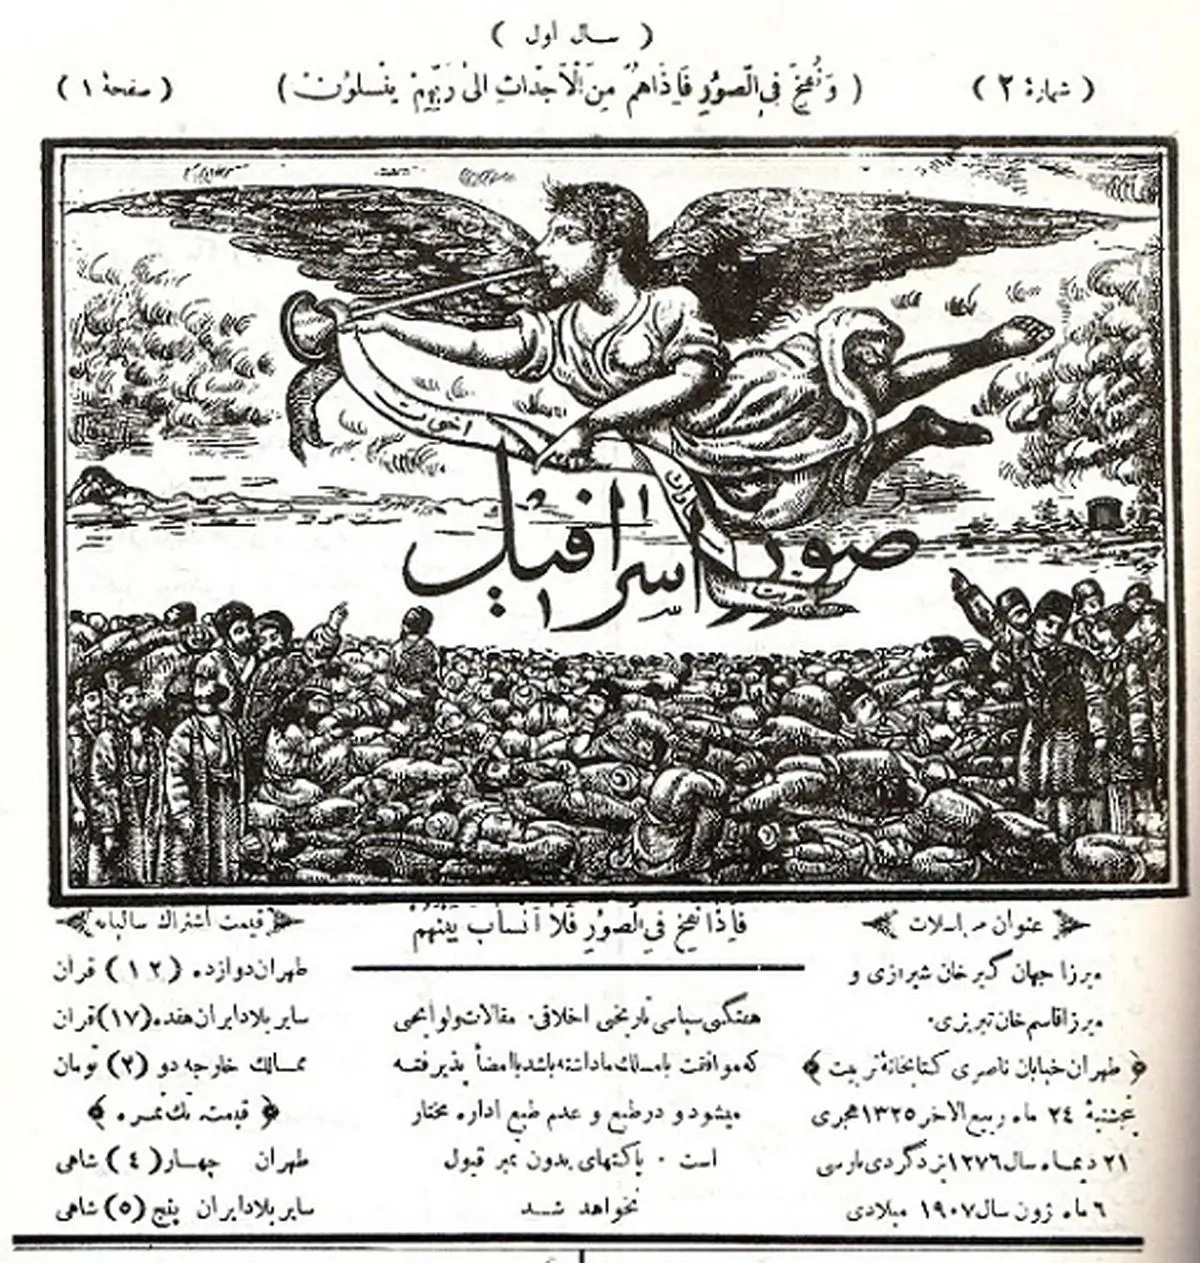 ( سال اول )
( شمارهٔ ۲ )
( وَنُفِخَ فِي الصُّورِ فَإِذَاهُمْ مِنَ الْأَجْدَاثِ إِلَىٰ رَبِّهِمْ يَنْسِلُونَ )
( صفحهٔ ۱ )
اخوت
مساوات
حریت
صور اسرافیل
عنوان مراسلات
میرزا جهان گیر خان شیرازی و
میرزا قاسم خان تبریزی.
﴿ طهران خیابان ناصری کتابخانهٔ تربیت ﴾
پنجشنبهٔ ۲۴ ماه ربیع الاخر ۱۳۲۵ هجری
۲۱ دیماه سال ۱۲۷۶ یزدگردی پارسی
۶ ماه ژون سال ۱۹۰۷ میلادی
فَإِذَا نُفِخَ فِي الصُّورِ فَلَا أَنْسَابَ بَيْنَهُمْ
هفتگی سیاسی تاریخی اخلاقی. مقالات و لوایحی
که موافقت با مسلک ما داشته باشد با امضأ پذیرفته
میشود و در طبع و عدم طبع اداره مختار
است . پاکتهای بدون تمبر قبول
نخواهد شد
قیمت اشتراک سالیانه
طهران دوازده ( ۱۲ ) قران
سایر بلاد ایران هفده (۱۷) قران
ممالک خارجه دو (۲) تومان
﴿ قیمت تک نمره ﴾
طهران چهار ( ٤ ) شاهی
سایر بلاد ایران پنج (۵) شاهی